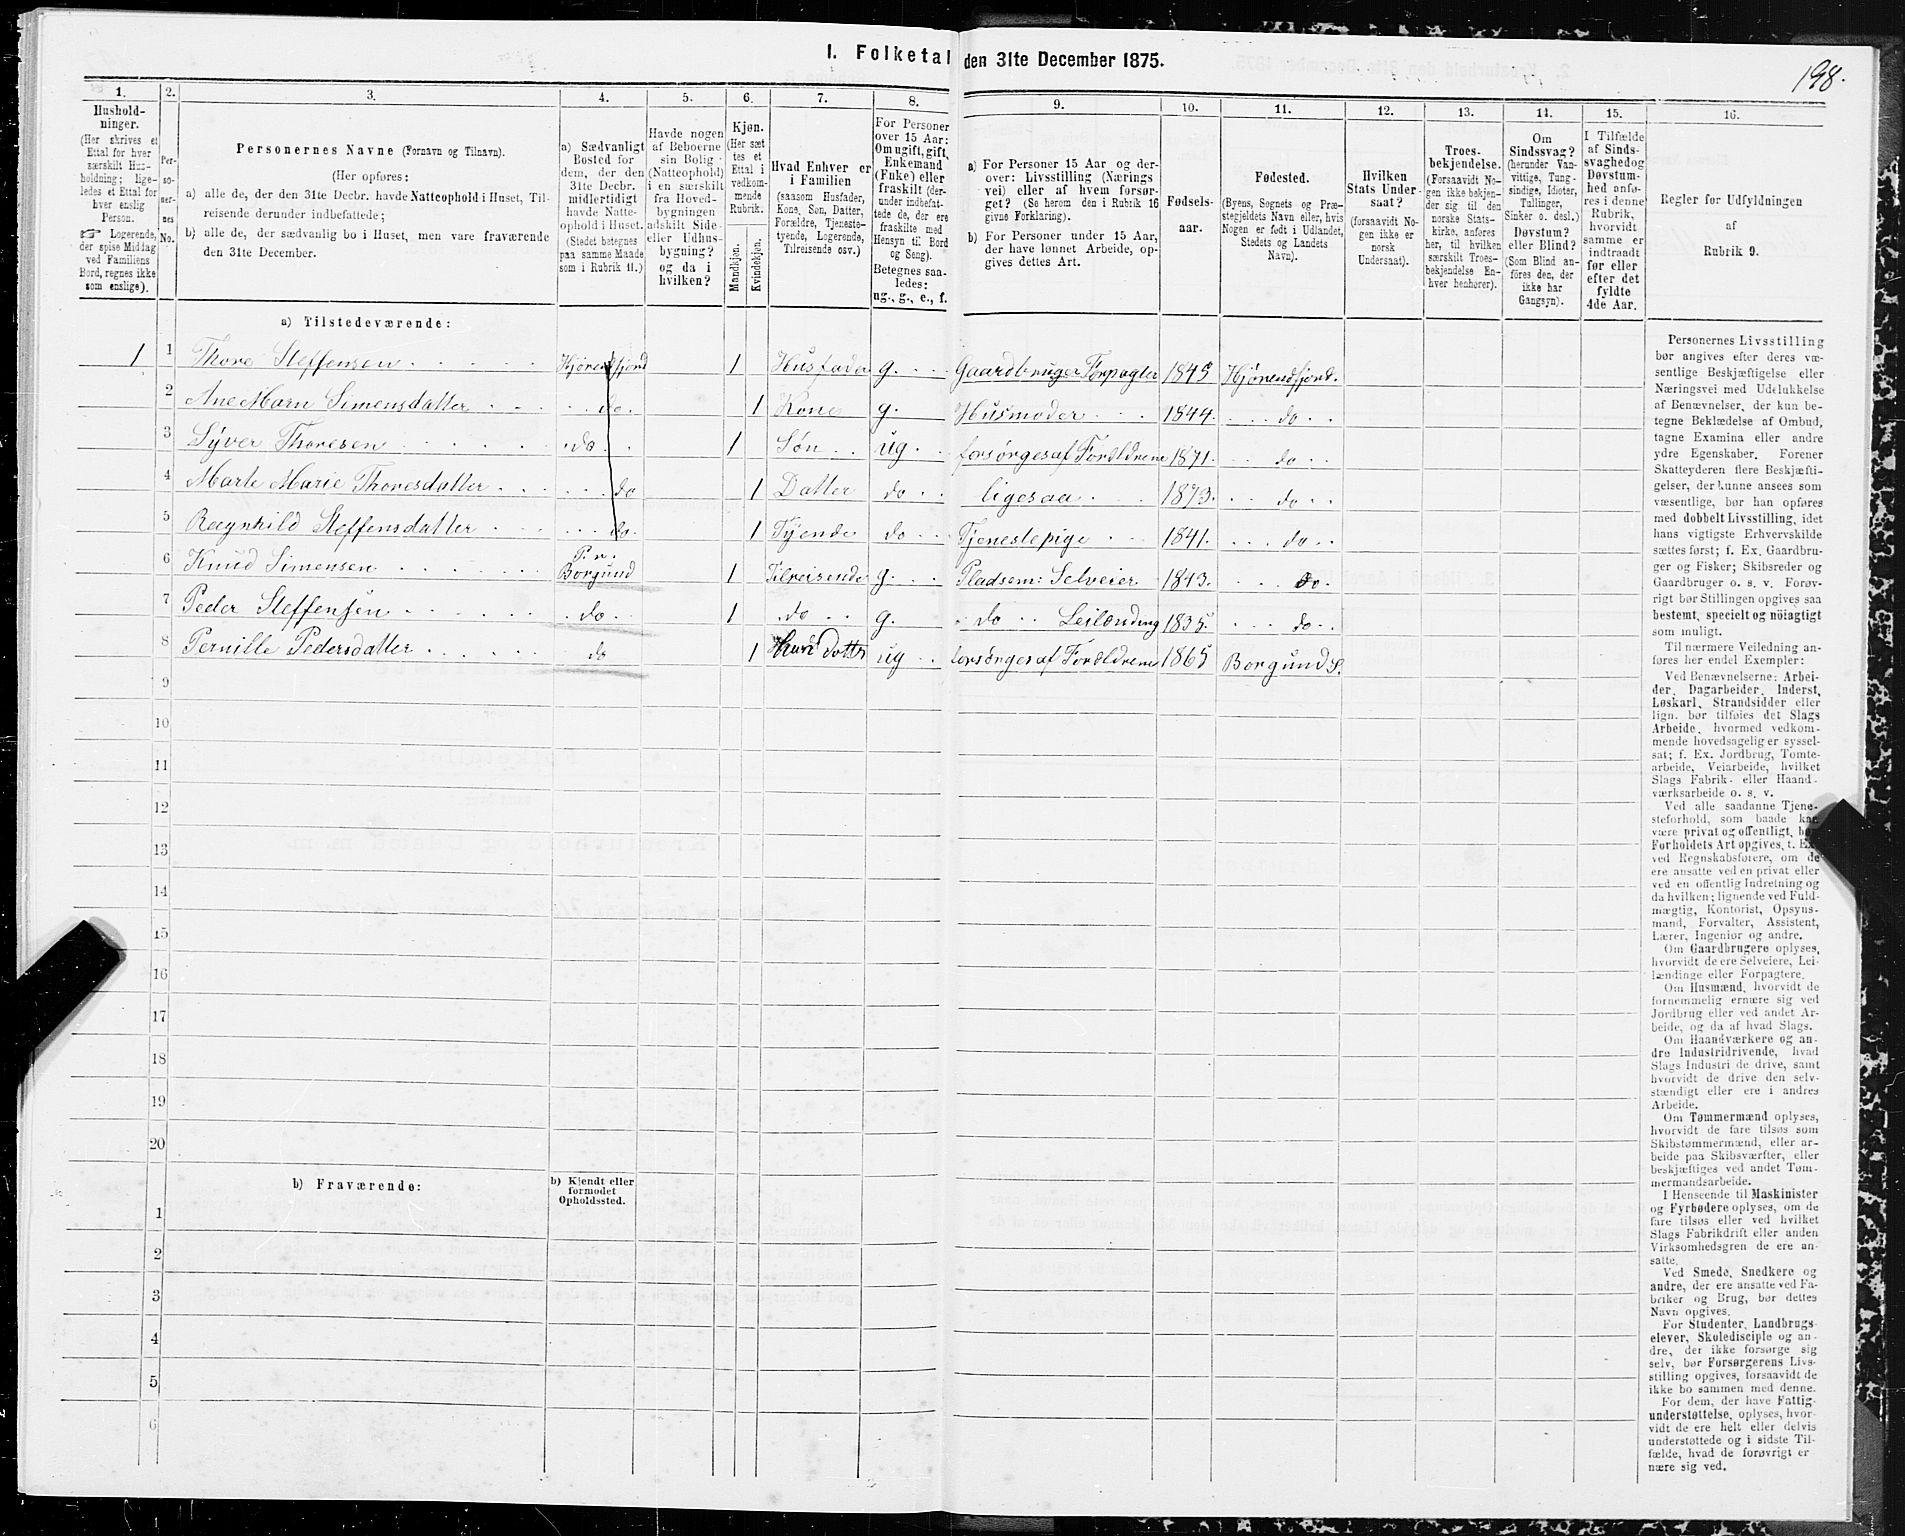 I. Folketal den 31te December 1875.
198.
1.
2.
3.
4.
5.
6.
7.
8.
9.
10.
11.
12.
13.
14.
15.
16.
Hushold-
ninger.
(Her skrives et
Ettal for hver
særskilt Hus-
holdning; lige-
ledes et Ettal for
hver enslig
Person.
☞ Logerende,
der spise Middag
ved Familiens
Bord, regnes ikke
som enslige).
Per-
so-
ner-
nes
No.
Personernes Navne (Fornavn og Tilnavn).
(Her opføres:
a) alle de, der den 31te Decbr. havde Natteophold i Huset, Til-
reisende derunder indbefattede;
b) alle de, der sædvanlig bo i Huset, men vare fraværende
den 31te December.
a) Sædvanligt
Bosted for
dem, der den
31te Decbr.
midlertidigt
havde Natte-
ophold i Huset.
(Stedet betegnes
paa samme Maade
som i Rubrik 11.)
Havde nogen
af Beboerne
sin Bolig
(Natteophold)
i en særskilt
fra Hoved-
bygningen
adskilt Side-
eller Udhus-
bygning?
og da i
hvilken?
Kjøn.
(Her sæt
tes et
Ettal i
vedkom-
mende
Rubrik.
Mandkjøn.
Kvindekjøn.
Hvad Enhver er
i Familien
(saasom Husfader,
Kone, Søn, Datter,
Forældre, Tjeneste-
tyende, Logerende,
Tilreisende osv.)
For Personer
over 15 Aar:
Om ugift, gift,
Enkemand
(Enke) eller
fraskilt (der-
under indbefat-
tede de, der ere
fraskilte med
Hensyn til Bord
og Seng).
Betegnes saa-
ledes:
ug., g., e., f.
a) For Personer 15 Aar og der-
over: Livsstilling (Nærings
vei) eller af hvem forsør-
get? (Se herom den i Rubrik 16
givne Forklaring).
b) For Personer under 15 Aar,
der have lønnet Arbeide, op-
gives dettes Art.
Fødsels-
aar.
Fødested.
(Byens, Sognets og Præ-
stegjeldets Navn eller, hvis
Nogen er født i Udlandet,
Stedets og Landets
Navn).
Hvilken
Stats Under-
saat?
(forsaavidt No-
gen ikke er
norsk
Undersaat).
Troes-
bekjendelse.
(Forsaavidt No-
gen ikke bekjen-
der sig til den
norske Stats-
kirke, anføres
her, til hvilken
særskilt Troes-
bekjendelse En-
hver henhører).
Om
Sindssvag?
(herunder Van-
vittige, Tung-
sindige, Idioter,
Sinker o. desl.)
Døvstum?
eller Blind?
(Som Blind an-
føres den, der
ikke har
Gangsyn).
I Tilfælde
af Sinds-
svaghed og
Døvstum-
hed anfø-
res i denne
Rubrik,
hvorvidt
samme er
indtraadt
før eller
efter det
fyldte
4de Aar.
Regler for Udfyldningen
af
Rubrik 9.
a) Tilstedeværende:
1 1 Thore Steffensen Hjørendfjord 1 Husfader g. Gaardbruger Forpagter 1845 Hjørendfjord.
2 Ane Marn Simensdatter do. 1 Kone g. Husmoder 1844. do
3 Syver Thoresen do 1 Søn ug. forsørges af Forældrene 1871. do
4 Marte Marie Thoresdatter do 1 Datter do ligesaa 1873. do
5 Ragnhild Steffensdatter do. 1 Tyende do Tjenestepige 1841. do
6 Knud Simensen Pr. Borgund 1 Tilreisende g. Pladsem: Selveier 1843. do.
7 Peder Steffensen do 1 do g. do Leilænding 1835. do
8 Pernille Pedersdatter do 1 Hans Datter ug forsørges af Forældrene 1865 Borgund S.
9
10
11
12
13
14
15
16
17
18
19
20
b) Fraværende:
b) Kjendt eller
formodet
Opholdssted.
1
2
3
4
5
6
Personernes Livsstilling
bør angives efter deres væ-
sentlige Beskjæftigelse eller
Næringsvei med Udelukkelse
af Benævnelser, der kun be-
tegne Beklædelse af Ombud,
tagne Examina eller andre
ydre Egenskaber. Forener
Skatteyderen flere Beskjæfti-
gelser, der kunne ansees som
væsentlige, bør han opføres
med dobbelt Livsstilling, idet
hans vigtigste Erhvervskilde
sættes først; f. Ex. Gaardbru-
ger og Fisker; Skibsreder og
Gaardbruger o. s. v. Forøv-
rigt bør Stillingen opgives saa
bestemt, specielt og nöiagtigt
som muligt.
Til nærmere Veiledning an-
føres her endel Exempler:
Ved Benævnelserne: Arbei-
der, Dagarbeider, Inderst,
Løskarl, Strandsidder eller
lign. bør tilføies det Slags
Arbeide, hvormed vedkom-
mende hovedsagelig er syssel-
sat; f. Ex. Jordbrug, Tomte-
arbeide, Veiarbeide, hvilket
Slags Fabrik- eller Haand-
værksarbeide o. s. v.
Ved alle saadanne Tjene-
steforhold, som baade kan
være privat og offentligt, bør
Forholdets Art opgives, t. Ex.
ved Regnskabsførere, om de
ere ansatte ved en privat eller
ved en offentlig Indretning og
da hvilken; lignende ved Fuld-
mægtig, Kontorist, Opsyns-
mand, Forvalter, Assistent,
Lærer, Ingeniør og andre.
Om Gaardbrugere oplyses,
hvorvidt de ere Selveiere, Lei-
lændinge eller Forpagtere.
Om Husmænd, hvorvidt de
fornemmelig ernære sig ved
Jordbrug eller ved andet Ar-
beide, og da af hvad Slags.
Om Haandværkere og an-
dre Industridrivende, hvad
Slags Industri de drive, samt
hvorvidt de drive den selv-
stændigt eller ere i andres
Arbeide.
Om Tømmermænd oplyses,
hvorvidt de fare tilsøs som
Skibstømmermænd, eller ar-
beide paa Skibsværfter, eller
beskjæftiges ved andet Tøm-
mermandsarbeide.
I Henseende til Maskinister
og Fyrbødere oplyses, om de
fare tilsøs eller ved hvilket
Slags Fabrikdrift eller anden
Virksomhedsgren de ere an-
satte.
Ved Smede, Snedkere og
andre, der ere ansatte ved Fa-
briker og Brug, bør dettes
Navn opgives.
For Studenter, Landbrugs-
elever, Skoledisciple og an-
dre, der ikke forsørge sig
selv, bør Forsørgerens Livs-
stilling opgives, forsaavidt de
ikke bo sammen med denne.
For dem, der have Fattig-
understøttelse, oplyses, hvor-
vidt de ere helt eller delvis
understøttede og i sidste Til-
fælde, hvad de forøvrigt er
nære sig ved.